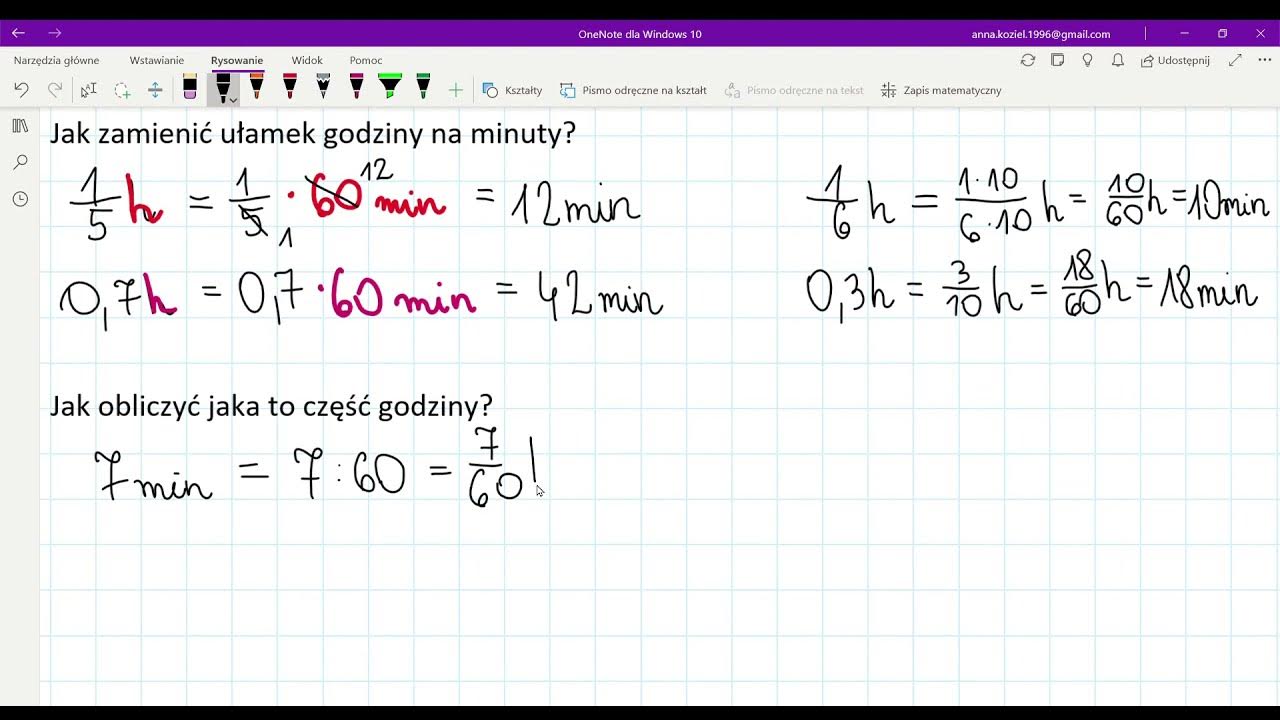 OneNote dla Windows 10
anna.koziel.1996@gmail.com
Narzędzia główne Wstawianie Rysowanie Widok Pomoc Udostępnij
Kształty Pismo odręczne na kształt Pismo odręczne na tekst Zapis matematyczny
Jak zamienić ułamek godziny na minuty?
1/5 h = 1/5 · 60 min = 12 min
12
1
1/6 h = 1·10/6·10 h = 10/60 h = 10 min
0,7h = 0,7 · 60 min = 42 min
0,3h = 3/10 h = 18/60 h = 18 min
Jak obliczyć jaka to część godziny?
7 min = 7 : 60 = 7/60